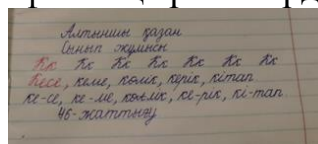 Алтыншы қазан
Сынып жұмысы
Кк Кк Кк Кк Кк Кк Кк
Кесе, кеме, көлік, керік, кітап
ке-се, ке-ме, көлік, ке-рік, кі-тап
46-жаттығу